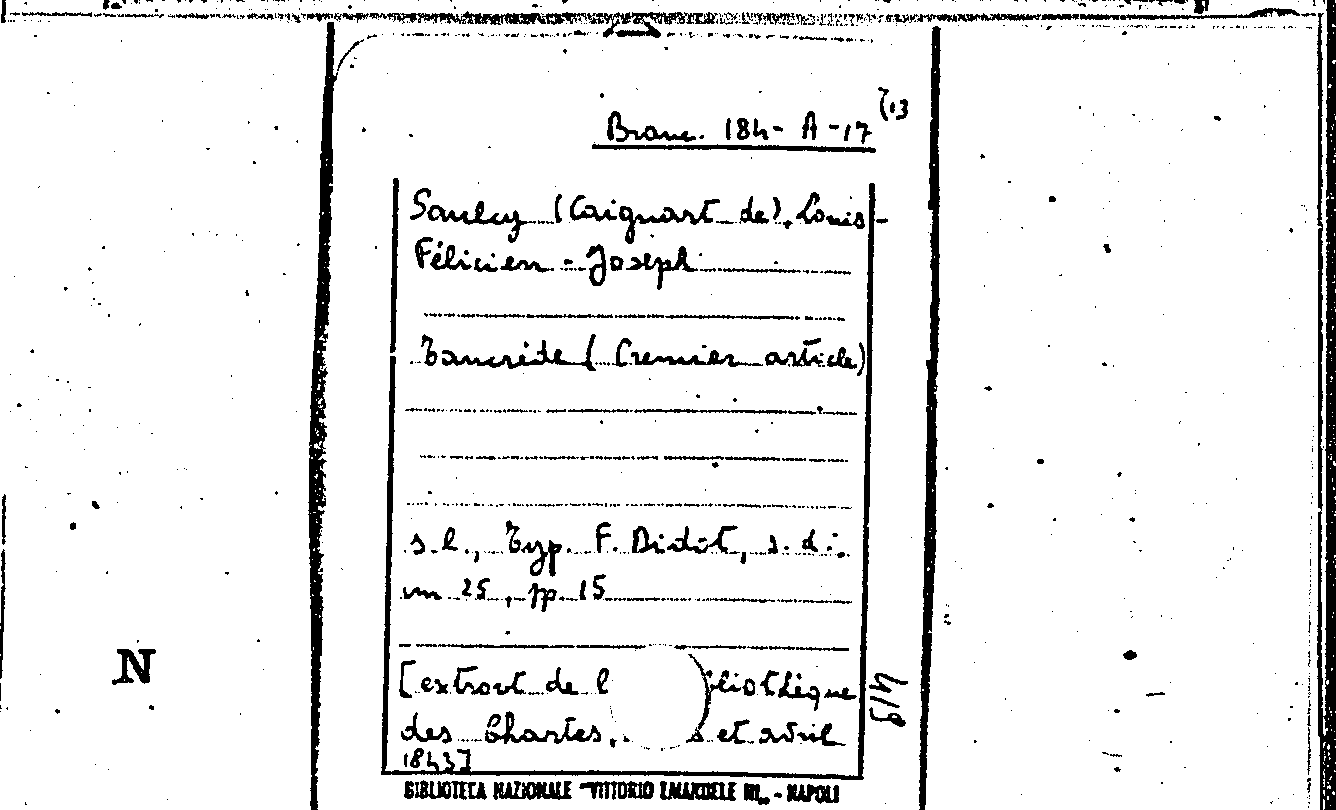 Branc. 184-A-17
(13
Saulcy (Caignart de), Louis-
Félicien-Joseph
Tancrède (Premier article)
s.l., Typ. F. Didot, s.d.
cm 25, pp. 15
[extrait de l bliothèque
des Chartes, s et avril
1843]
419
N
BIBLIOTECA NAZIONALE "VITTORIO EMANUELE III" - NAPOLI